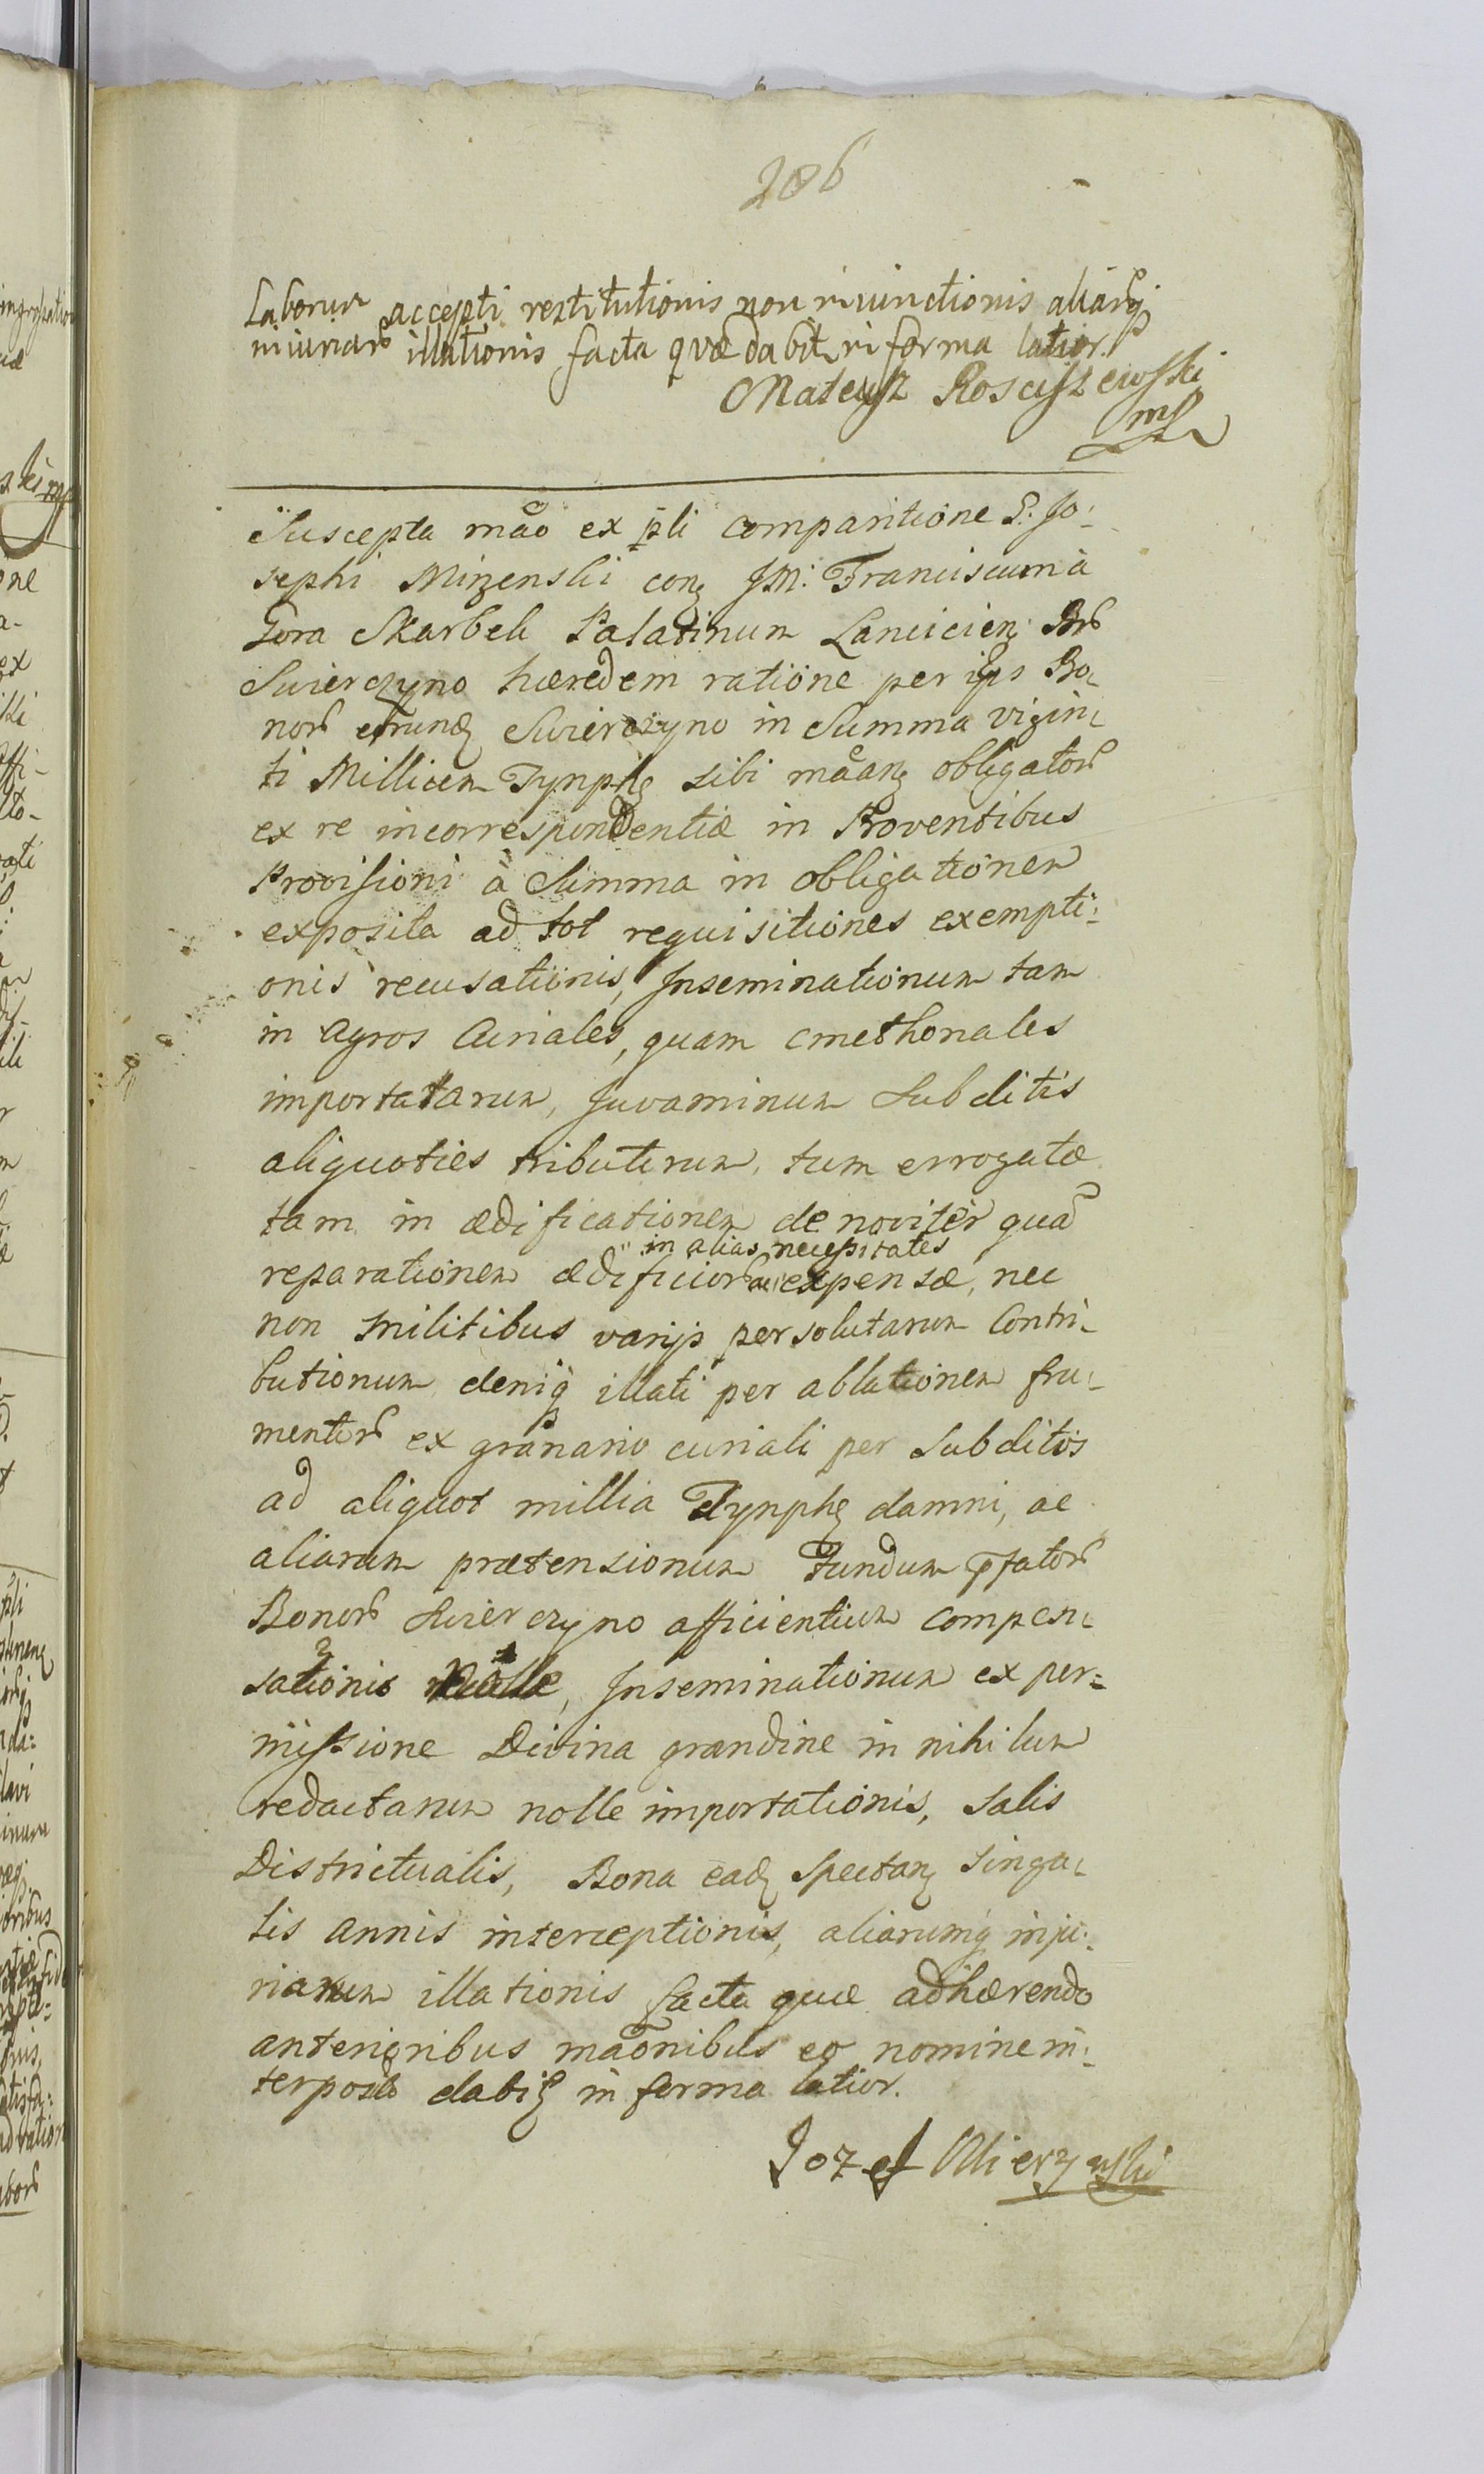 206
Laborum accepti restitutionis non iniunctionis aliarq
iniuriar illationis facta quæ dabit in forma latior.
Mateusz Rosciszewski
mp
Suscepta mão ex pli comparitione P. Jo-
sephi Mirzenski con JM. Franciscum à
Gora Skarbek Palatinum Lancicien Bor
Swierczyno hæredem ratione per ips Bo-
nor Swierczyno in Summa vigin-
ti Millium Tynph sibi mãan obligator
ex re incorrespondentiæ in Proventibus
Provisioni à Summa in obligationem
exposita ad tot requisitiones exempti-
onis recusationis, Inseminationum tam
in agros Curiales, quam cmethonales
importatarum, Juvaminum Subditis
aliquoties tributorum, tum errogatæ
tam in ædificationem de noviter quã
in alias necessitates
reparationem ædificior ac expensæ, nec
non militibus varijs persolutarum Contri-
butionum deniq illati per ablationem fru-
mentor ex granario curiali per Subditos
ad aliquot millia Tynph damni, ac
aliarum prætensionum Fundum pfator
Bonor Swierczyno afficientium compen-
sationis nolle, Inseminationum ex per-
missione Divina grandine in nihilum
redactarum nolle importationis, Salis
Districtualis, Bona ead spectan singu-
lis annis interceptionis, aliarumq inju-
riarum illationis facta quæ adhærendo
anterioribus mãonibus eo nomine in-
terposit dabit in forma latior.
Jozef Mierzynski